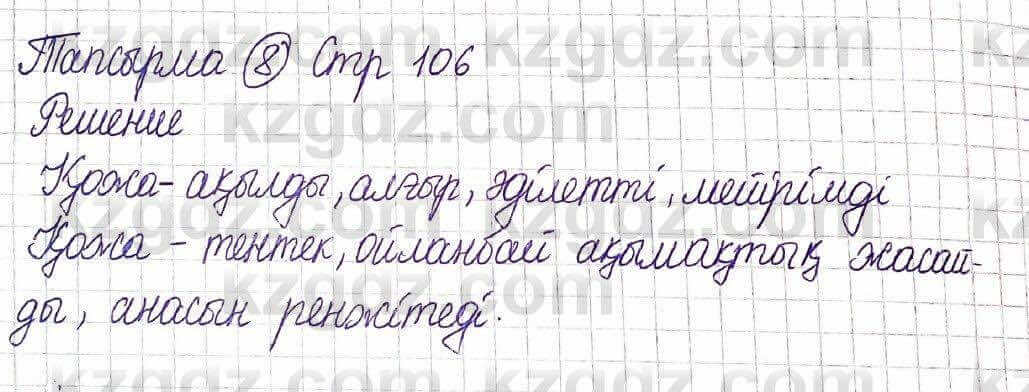 Тапсырма 8 Стр 106
Решение
Қожа - ақылды, алғыр, әділетті, мейірімді
Қожа - тентек, ойланбай ақымақтық жасай-
ды, анасын ренжітеді.
kzgdz.com